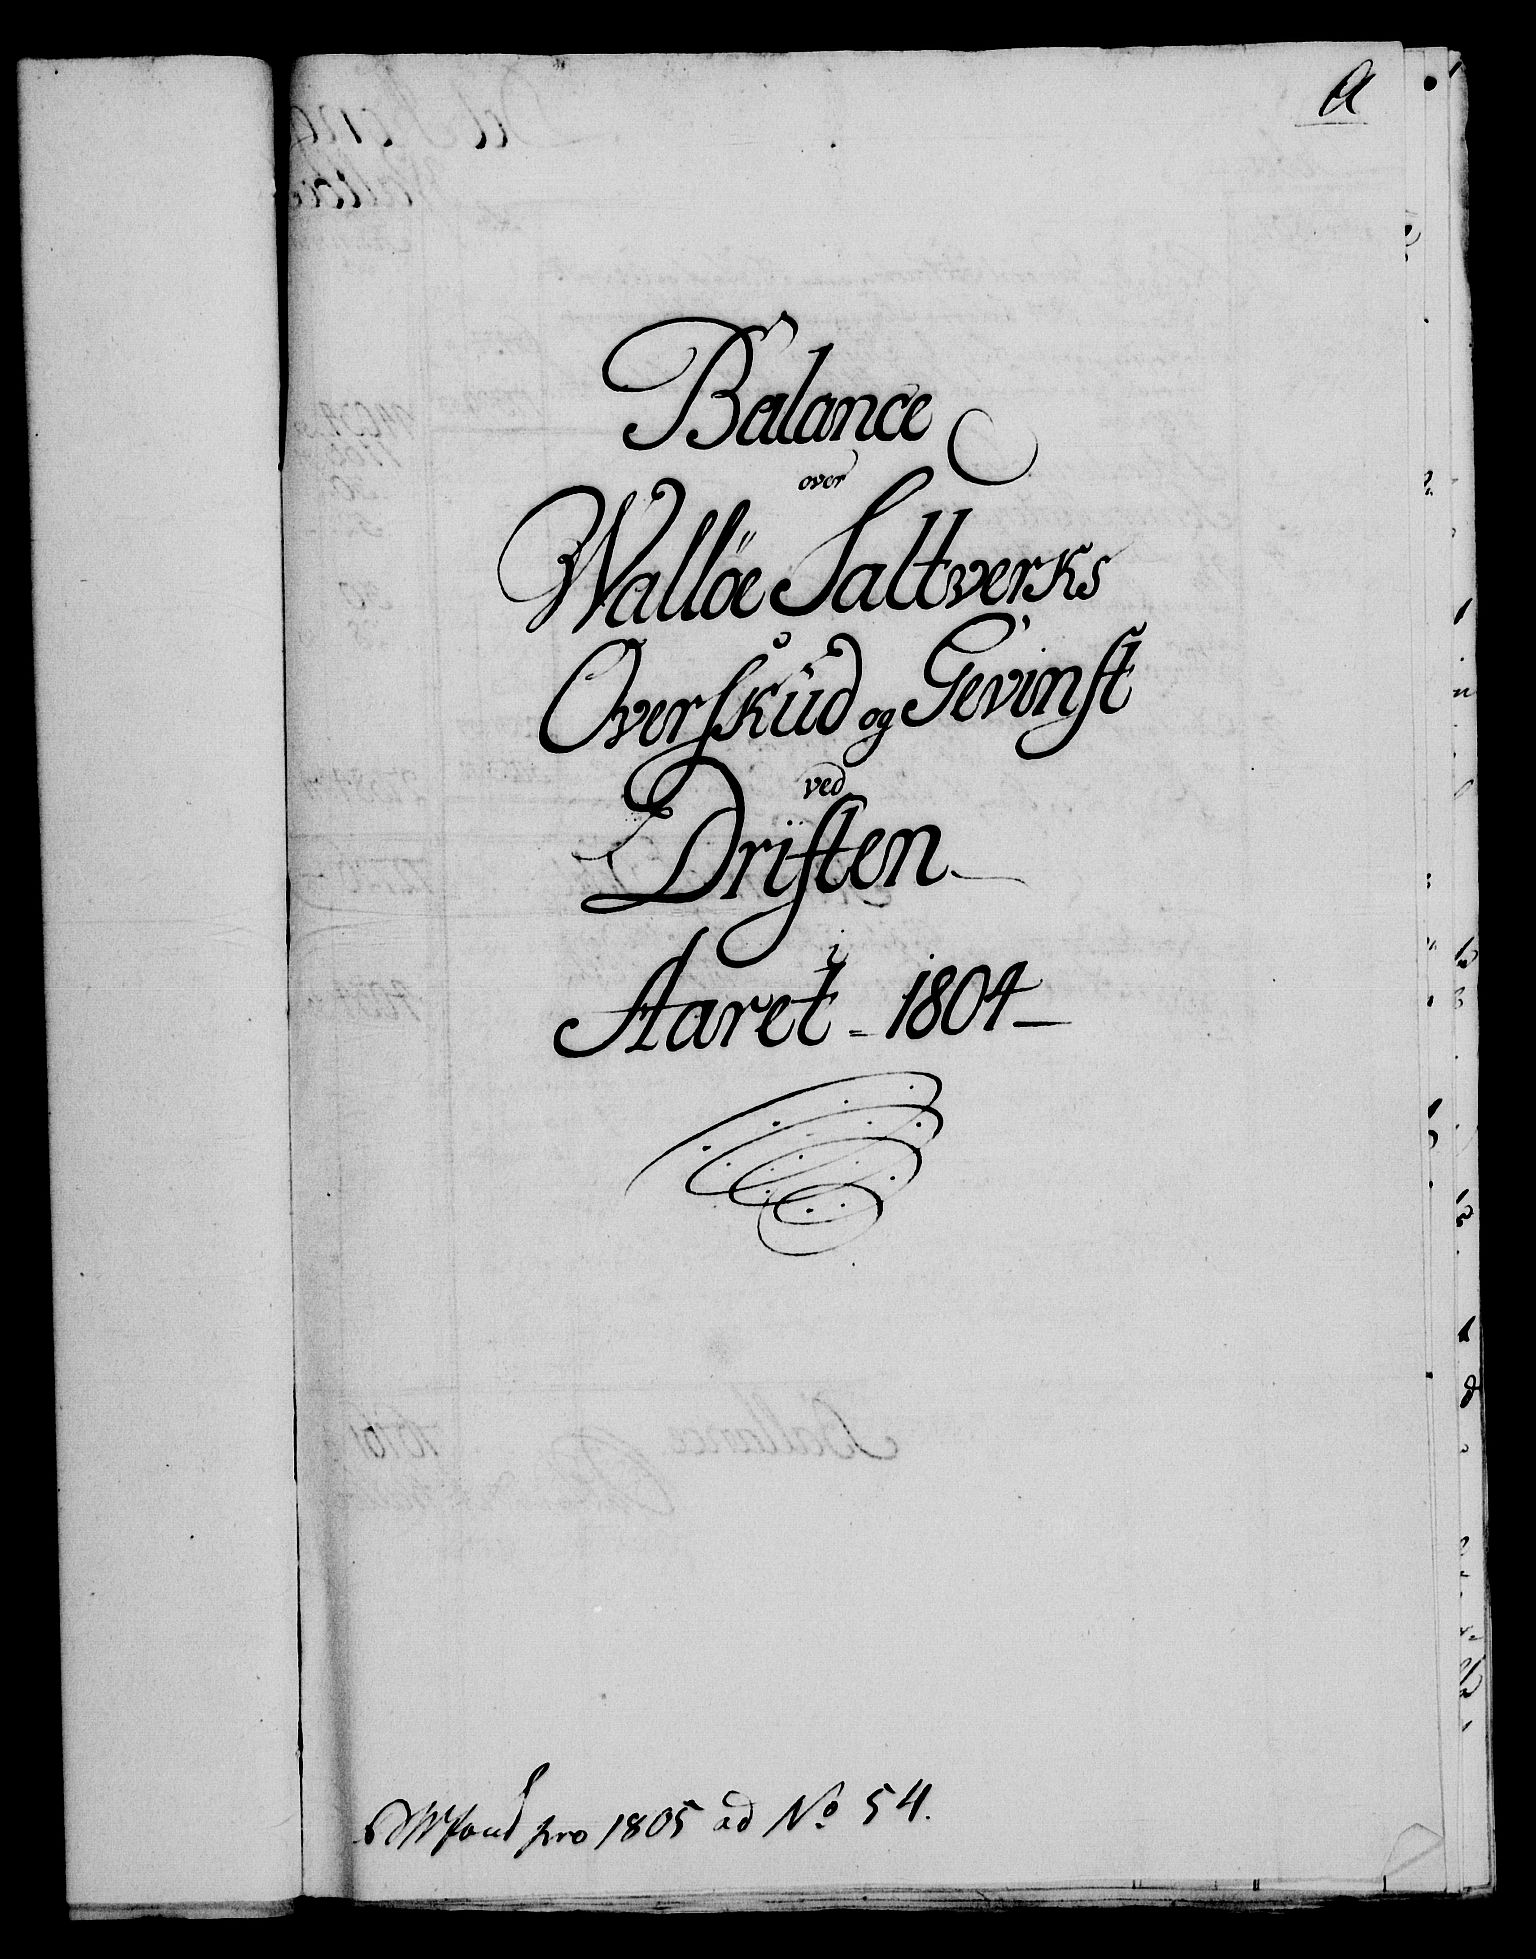 a
Balance
over
Wallöe Saltverks
Overskud og Gevinst
ved
Driften
i
Aaret = 1804 —
pro 1805 ad No. 54.